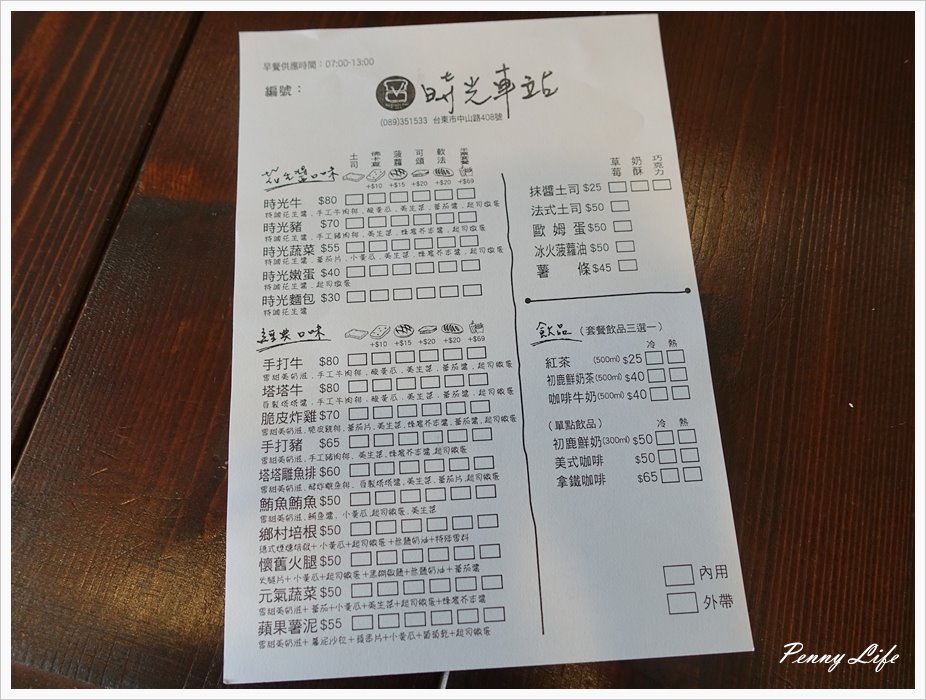 早餐供應時間：07:00-13:00
編號：
時光車站
(089)351533 台東市中山路408號
花生醬口味
土司 佛卡夏 菠蘿 可頌 軟法
+$10 +$15 +$20 +$20 +$69
時光牛 $80
特調花生醬．手工牛肉排．酸黃瓜．美生菜．蕃茄醬．起司嫩蛋
時光豬 $70
特調花生醬．手工豬肉排．美生菜．蜂蜜芥末醬．起司嫩蛋
時光蔬菜 $55
特調花生醬．蕃茄片．小黃瓜．美生菜．起司嫩蛋
時光嫩蛋 $40
特調花生醬．起司嫩蛋
時光麵包 $30
特調花生醬
經典口味
+$10 +$15 +$20 +$20 +$69
手打牛 $80
雪甜美奶滋．手工牛肉排．酸黃瓜．美生菜．蕃茄醬．起司嫩蛋
塔塔牛 $80
自製塔塔醬．手工牛肉排．酸黃瓜．美生菜．蕃茄醬．起司嫩蛋
脆皮炸雞 $70
雪甜美奶滋．脆皮雞排．蕃茄片．美生菜．蜂蜜芥末醬．起司嫩蛋
手打豬 $65
雪甜美奶滋．手工豬肉排．美生菜．蜂蜜芥末醬．起司嫩蛋
塔塔雕魚排 $60
雪甜美奶滋．酥炸雕魚排．自製塔塔醬．美生菜．蕃茄片．起司嫩蛋
鮪魚鮪魚 $50
雪甜美奶滋．鮪魚醬．小黃瓜．起司嫩蛋．美生菜
鄉村培根 $50
德式煙燻培根＋小黃瓜＋起司嫩蛋＋無鹽奶油＋特調醬料
懷舊火腿 $50
火腿片＋小黃瓜＋起司嫩蛋＋黑胡椒鹽＋無鹽奶油＋蕃茄醬
元氣蔬菜 $50
雪甜美奶滋＋蕃茄＋小黃瓜＋美生菜＋起司嫩蛋＋蜂蜜芥末醬
蘋果薯泥 $55
雪甜美奶滋＋薯泥沙拉＋蘋果片＋小黃瓜＋葡萄乾＋起司嫩蛋
草莓 奶酥 巧克力
抹醬土司 $25
法式土司 $50
歐姆蛋 $50
冰火菠蘿油 $50
薯條 $45
飲品 （套餐飲品三選一）
冷 熱
紅茶 (500ml) $25
初鹿鮮奶茶 (500ml) $40
咖啡牛奶 (500ml) $40
（單點飲品） 冷 熱
初鹿鮮奶 (300ml) $50
美式咖啡 $50
拿鐵咖啡 $65
內用
外帶
Penny Life